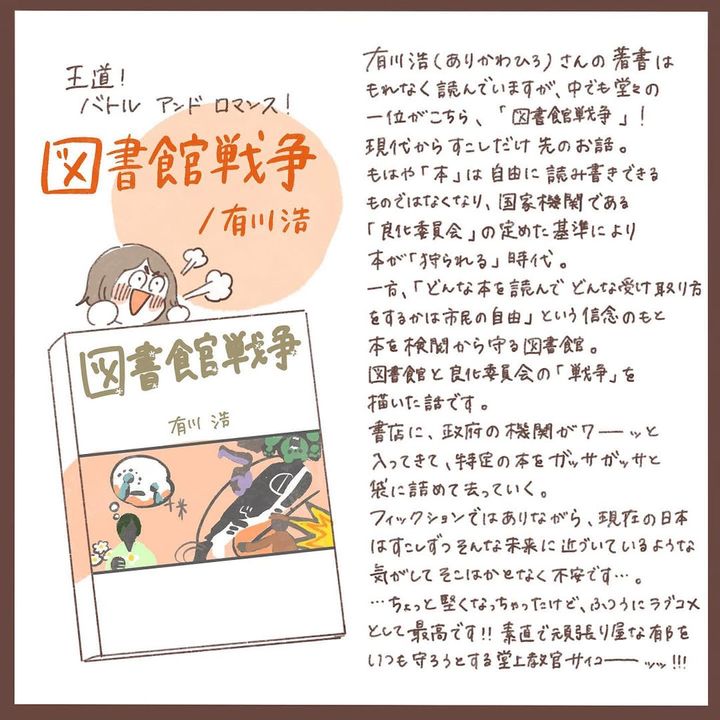 王道!
バトル アンド ロマンス!
図書館戦争
/有川浩
図書館戦争
有川 浩
有川浩(ありかわひろ)さんの著書は
もれなく読んでいますが、中でも堂々の
一位がこちら、「図書館戦争」!
現代からすこしだけ先のお話。
もはや「本」は自由に読み書きできる
ものではなくなり、国家機関である
「良化委員会」の定めた基準により
本が「狩られる」時代。
一方、「どんな本を読んでどんな受け取り方
をするかは市民の自由」という信念のもと
本を検閲から守る図書館。
図書館と良化委員会の「戦争」を
描いた話です。
書店に、政府の機関がワーーッと
入ってきて、特定の本をガッサガッサと
袋に詰めて去っていく。
フィックションではありながら、現在の日本
はすこしずつそんな未来に近づいているような
気がしてそこはかとなく不安です…。
…ちょっと堅くなっちゃったけど、ふつうにラブコメ
として最高です!! 素直で頑張り屋な郁を
いつも守ろうとする堂上教官サイコーーッッ!!!